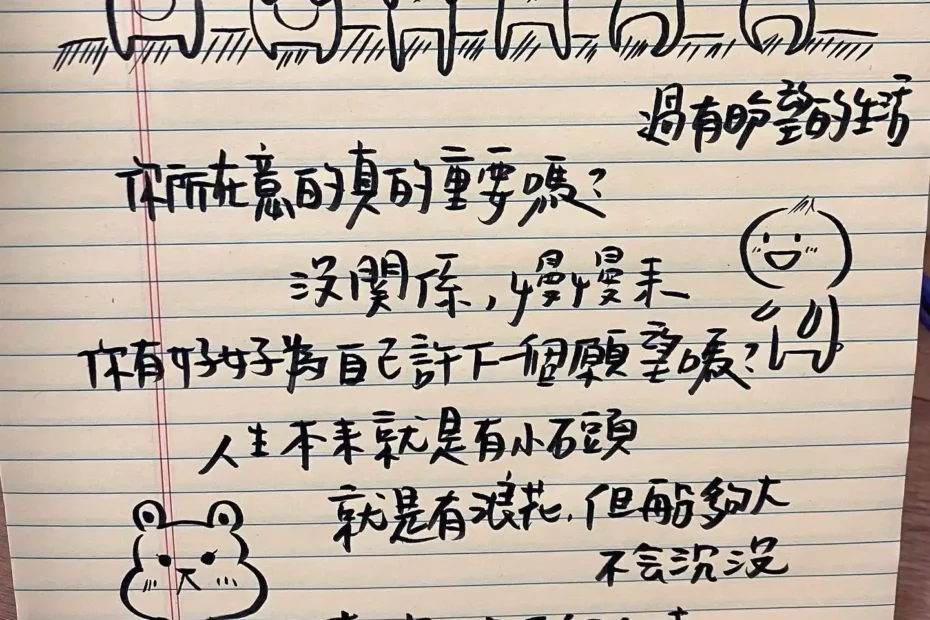 過有盼望的生活
你所在意的真的重要嗎?
沒關係,慢慢来
你有好好為自己許下一個願望嗎?
人生本来就是有小石頭
就是有浪花,但船夠大
不会沉没